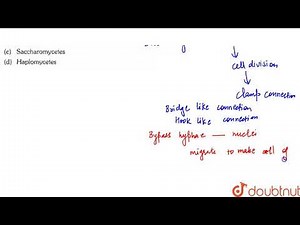 (c) Saccharomycetes
(d) Haplomycetes
cell division
clamp connection
Bridge like connection
Hook like connection
Bypass hyphae — nuclei
migrate to make cell of
doubtnut